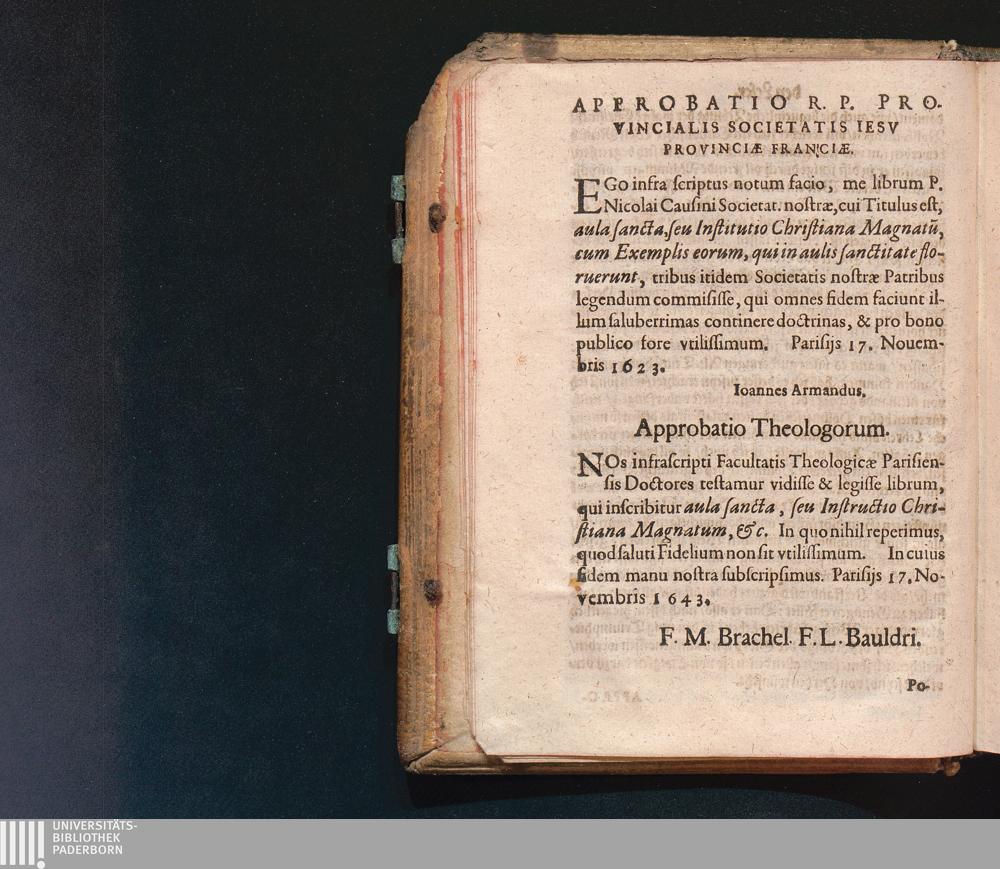 APPROBATIO R. P. PRO-
VINCIALIS SOCIETATIS IESV
PROVINCIÆ FRANCIÆ.
EGo infra ſcriptus notum facio, me librum P.
Nicolai Cauſini Societat. noſtræ, cui Titulus eſt,
aula ſancta, ſeu Inſtitutio Chriſtiana Magnatū,
cum Exemplis eorum, qui in aulis ſanctitate flo-
ruerunt, tribus itidem Societatis noſtræ Patribus
legendum commiſiſſe, qui omnes fidem faciunt il-
lum ſaluberrimas continere doctrinas, & pro bono
publico fore vtiliſſimum. Pariſijs 17. Nouem-
bris 1623.
Ioannes Armandus.
Approbatio Theologorum.
NOs infraſcripti Facultatis Theologicæ Pariſien-
ſis Doctores teſtamur vidiſſe & legiſſe librum,
qui inſcribitur aula ſancta, ſeu Inſtructio Chri-
ſtiana Magnatum, &c. In quo nihil reperimus,
quod ſaluti Fidelium non ſit vtiliſſimum. In cuius
fidem manu noſtra ſubſcripſimus. Pariſijs 17. No-
vembris 1643.
F. M. Brachel. F. L. Bauldri.
Po-
UNIVERSITÄTS-
BIBLIOTHEK
PADERBORN